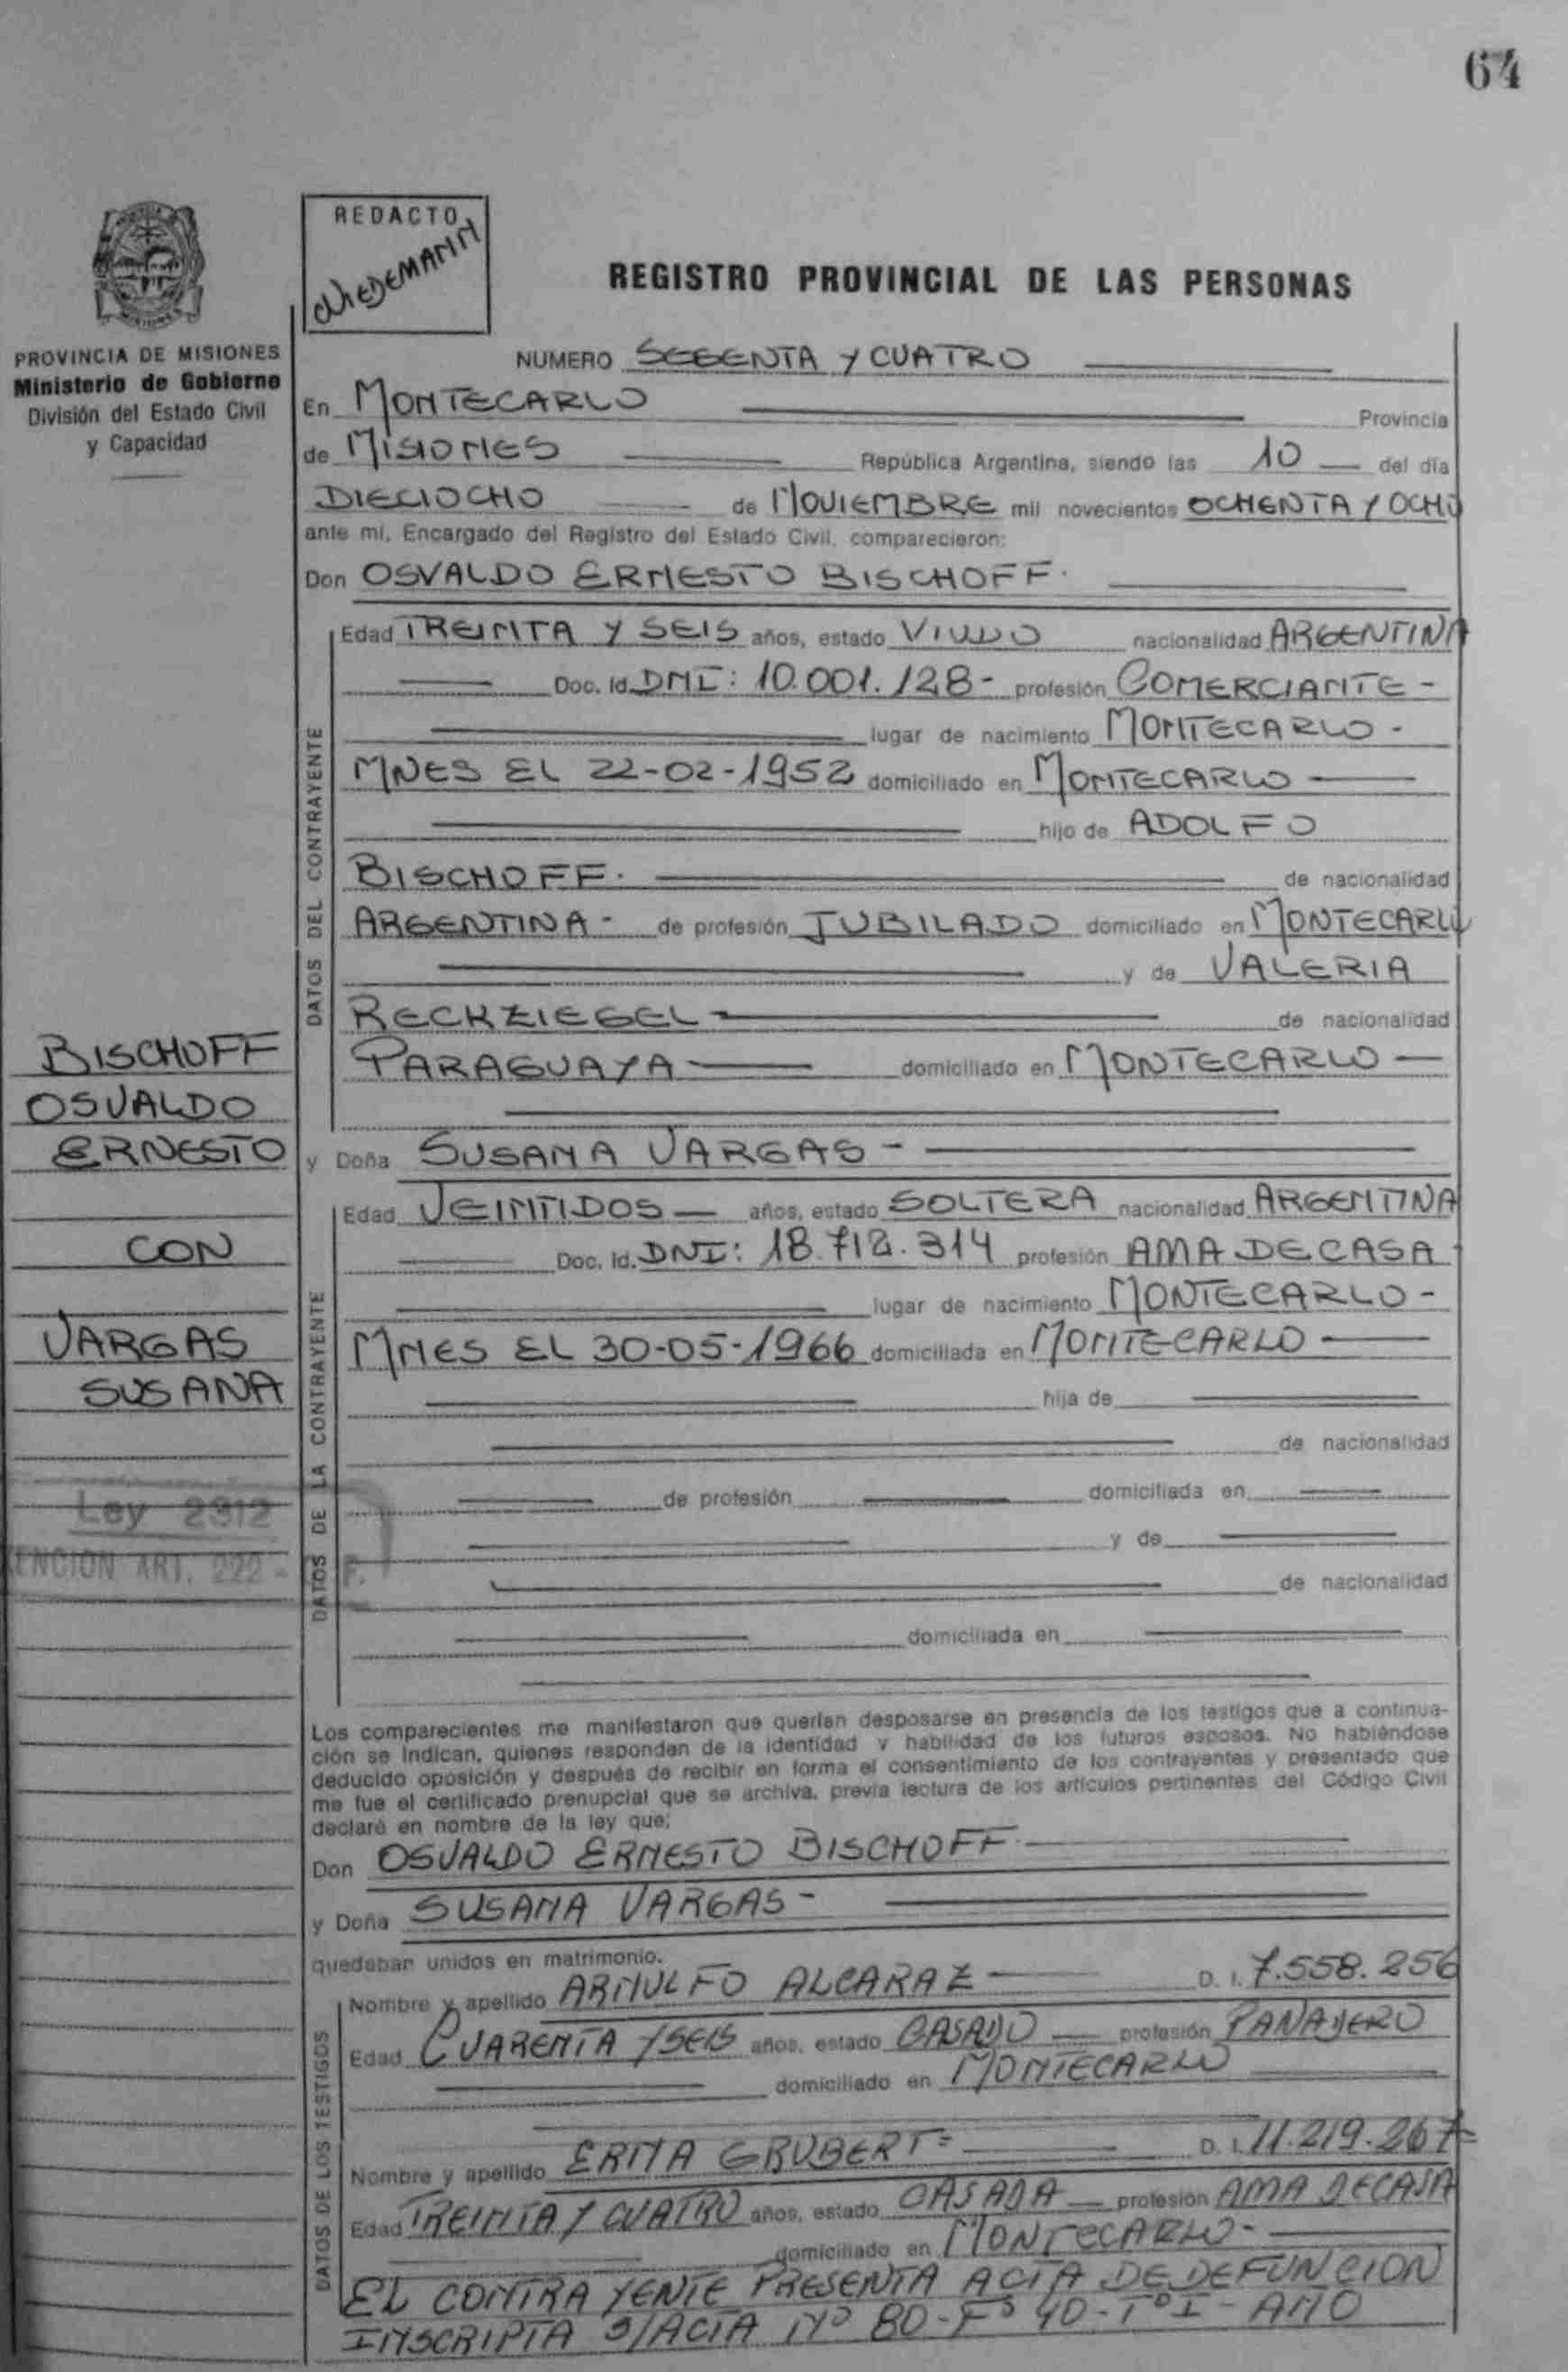 64
REDACTO
WIEDEMANN
REGISTRO PROVINCIAL DE LAS PERSONAS
PROVINCIA DE MISIONES
Ministerio de Gobierno
División del Estado Civil
y Capacidad
NUMERO SESENTA Y CUATRO
En MONTECARLO Provincia
de MISIONES República Argentina, siendo las 10 del día
DIECIOCHO de NOVIEMBRE mil novecientos OCHENTA Y OCHO
ante mi, Encargado del Registro del Estado Civil, comparecieron:
Don OSVALDO ERNESTO BISCHOFF.
DATOS DEL CONTRAYENTE
Edad TREINTA Y SEIS años, estado VIUDO nacionalidad ARGENTINA
Doc. Id. DNI: 10.001.128- profesión COMERCIANTE-
lugar de nacimiento MONTECARLO-
MNES EL 22-02-1952 domiciliado en MONTECARLO
hijo de ADOLFO
BISCHOFF. de nacionalidad
ARGENTINA- de profesión JUBILADO domiciliado en MONTECARLO
y de VALERIA
RECKZIEGEL de nacionalidad
PARAGUAYA domiciliado en MONTECARLO
y Doña SUSANA VARGAS-
BISCHOFF
OSVALDO
ERNESTO
CON
VARGAS
SUSANA
Ley 2312
ART. 222 -
F.
DATOS DE LA CONTRAYENTE
Edad VEINTIDOS años, estado SOLTERA nacionalidad ARGENTINA
Doc. Id. DNI: 18.712.314 profesión AMA DE CASA
lugar de nacimiento MONTECARLO-
MNES EL 30-05-1966 domiciliada en MONTECARLO
hija de
de nacionalidad
de profesión domiciliada en
y de
de nacionalidad
domiciliada en
Los comparecientes me manifestaron que querían desposarse en presencia de los testigos que a continua-
ción se indican, quienes responden de la identidad y habilidad de los futuros esposos. No habiéndose
deducido oposición y después de recibir en forma el consentimiento de los contrayentes y presentado que
me fue el certificado prenupcial que se archiva, previa lectura de los artículos pertinentes del Código Civil
declaré en nombre de la ley que:
Don OSVALDO ERNESTO BISCHOFF-
y Doña SUSANA VARGAS-
quedaban unidos en matrimonio.
DATOS DE LOS TESTIGOS
Nombre y apellido ARNULFO ALCARAZ D. I. 7.558.256
Edad CUARENTA Y SEIS años, estado CASADO profesión PANADERO
domiciliado en MONTECARLO
Nombre y apellido ERNA GRUBERT= D. I. 11.219.267
Edad TREINTA Y CUATRO años, estado CASADA profesión AMA DE CASA
domiciliado en MONTECARLO-
EL CONTRAYENTE PRESENTA ACTA DE DEFUNCION
INSCRIPTA S/ACTA Nº 80-Fº 40-TºI-AÑO